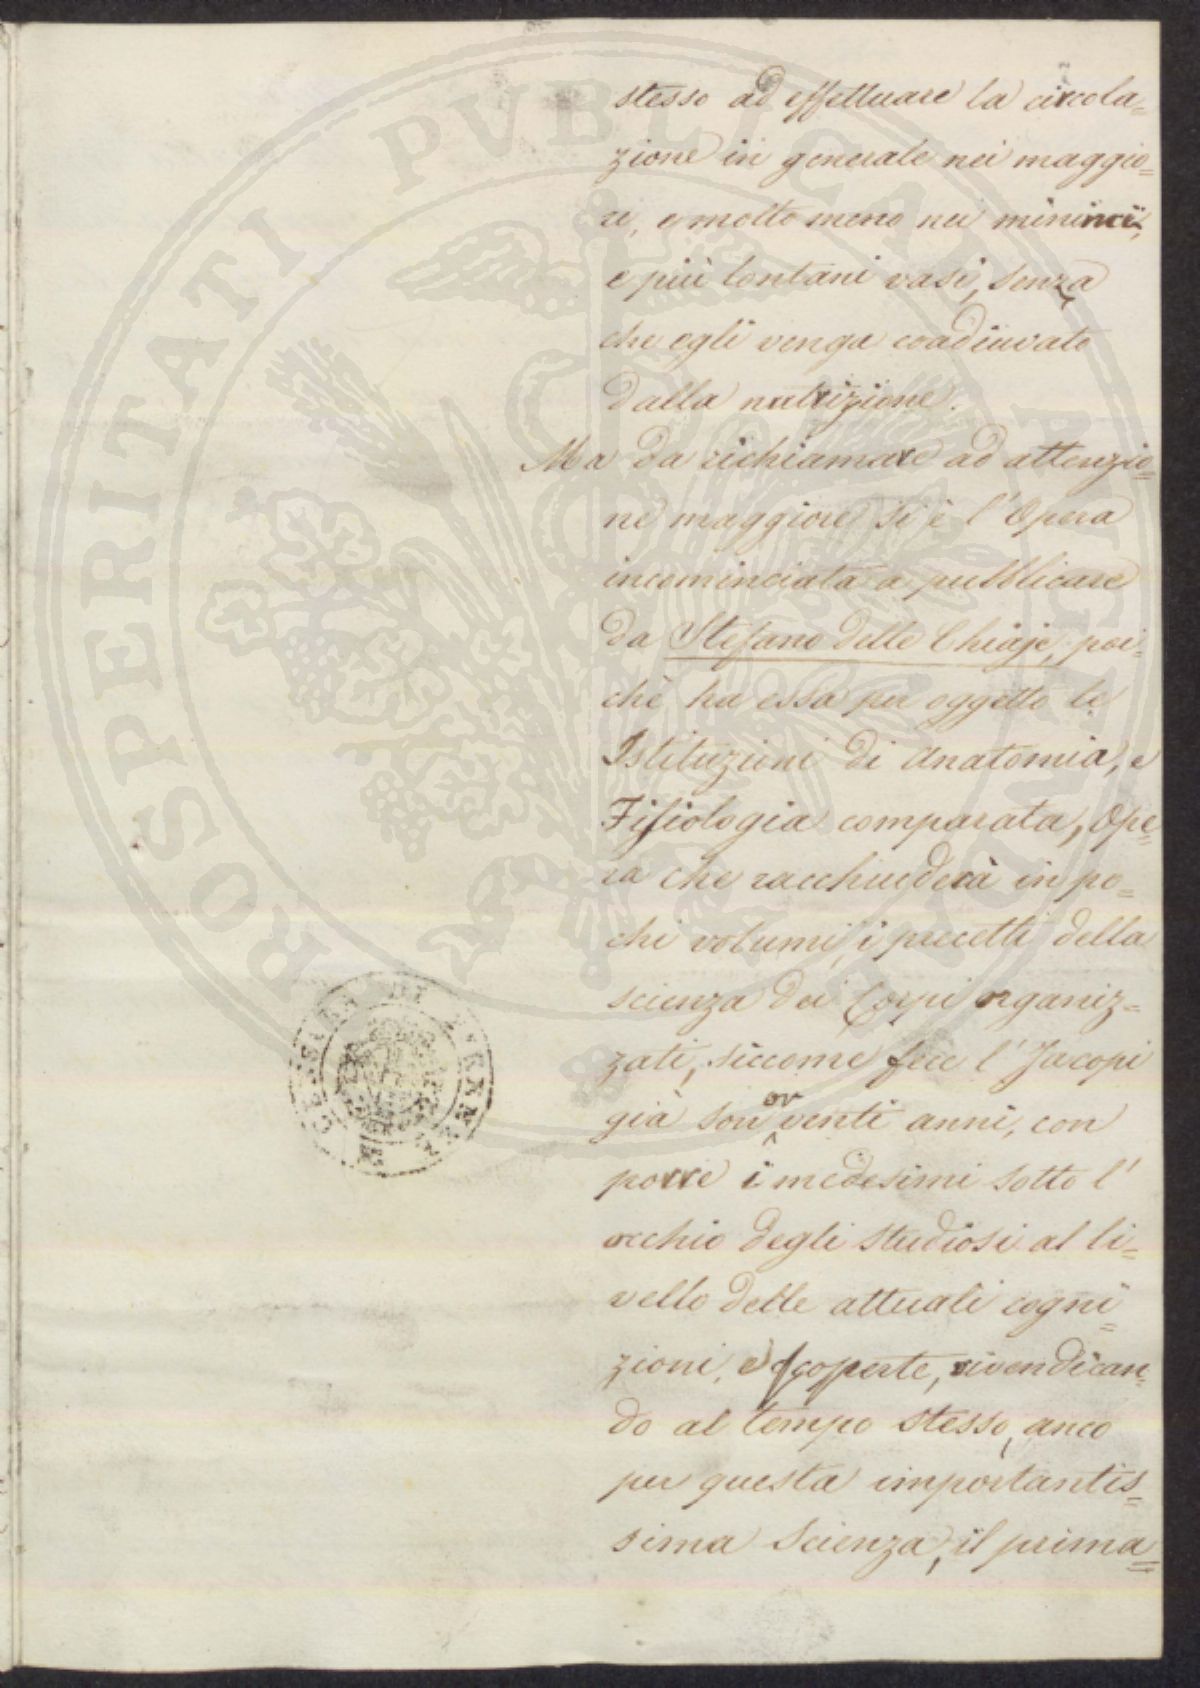 stesso ad effettuare la circola=
zione in generale nei maggio=
ri, e molto meno nei minimi,
e più lontani vasi, senza
che egli venga coadiuvato
dalla nutrizione.
Ma da richiamare ad attenzio=
ne maggiore si è l'Opera
incominciata a pubblicare
da Stefano delle Chiaje, poi=
chè ha essa per oggetto le
Istituzioni di Anatomia, e
Fisiologia comparata, Ope=
ra che racchiuderà in po=
chi volumi, i precetti della
scienza dei Corpi organiz=
zati, siccome fece l'Jacopi
già son or venti anni, con
porre i medesimi sotto l'
occhio degli studiosi al li=
vello delle attuali cogni=
zioni, e scoperte, rivendican=
do al tempo stesso, anco
per questa importantis=
sima Scienza, il prima=
PROSPERITATI PVBLICAE AVGENDAE